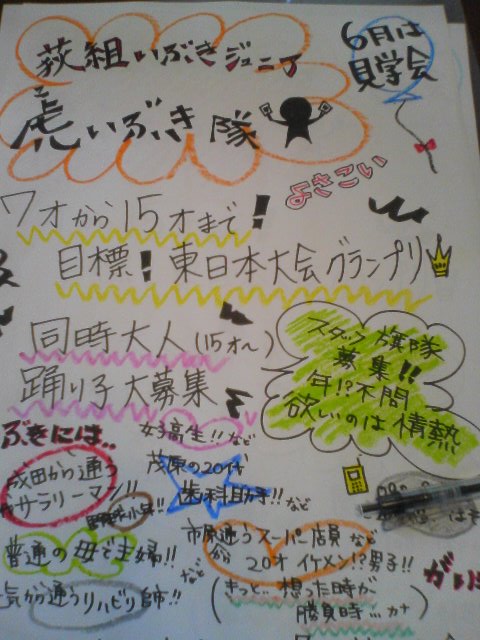 荻組いぶきジュニア
6月は
見学会
虎いぶき隊
よさこい
7才から15才まで!
目標!東日本大会グランプリ
同時大人(15才~)
踊り子大募集
スタッフ 旗隊
募集!!
年!?不問
欲しいのは情熱
ぶきには..
女子高生!!など
成田から通う
サラリーマン!!
茂原の20代
歯科助手!!など
普通の母で主婦!!
など
市原通うスーパー店員など
20才イケメン!?男子!!
気から通うリハビリ師!!
(きっと..想った時が
勝負時...かナ
がい